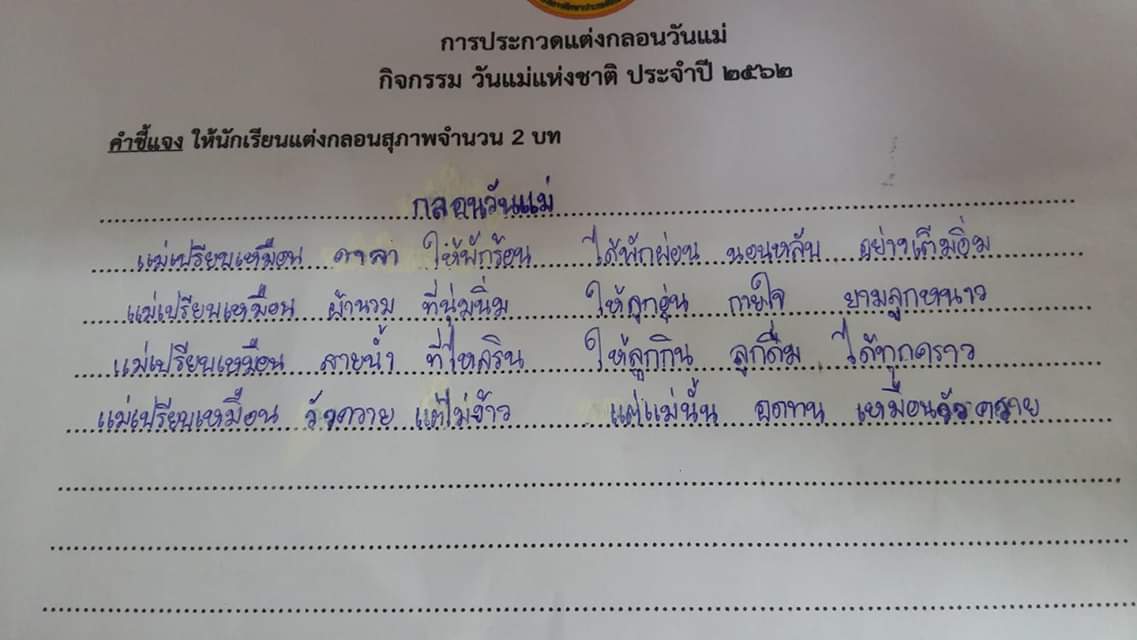 การประกวดแต่งกลอนวันแม่
กิจกรรม วันแม่แห่งชาติ ประจำปี ๒๕๖๒
คำชี้แจง ให้นักเรียนแต่งกลอนสุภาพจำนวน 2 บท
กลอนวันแม่
แม่เปรียบเหมือน ศาลา ให้พักร้อน ได้พักผ่อน นอนหลับ อย่างเต็มอิ่ม
แม่เปรียบเหมือน ผ้านวม ที่นุ่มนิ่ม ให้ลูกอุ่น กายใจ ยามลูกหนาว
แม่เปรียบเหมือน สายน้ำ ที่ไหลริน ให้ลูกกิน ลูกดื่ม ได้ทุกคราว
แม่เปรียบเหมือน วัวควาย แต่ไม่ง้าว แต่แม่นั้น อดทน เหมือนวัวควาย